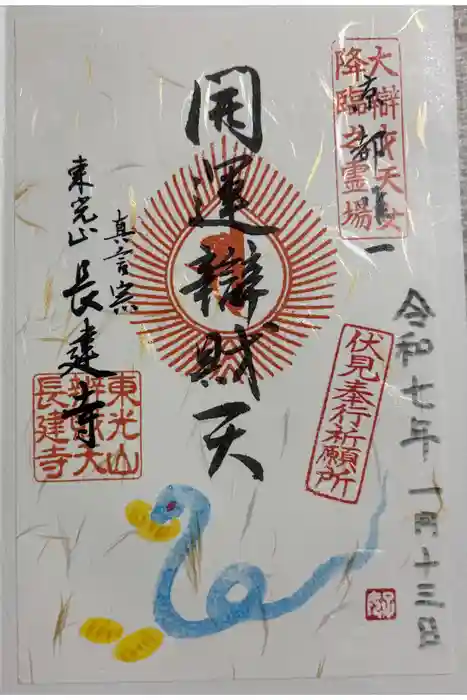 大辯才天女
降臨之霊場
京都一
令和七年一月十三日
伏見奉行祈願所
開運辯財天
真言宗
東光山
長建寺
東光山
辨財天
長建寺